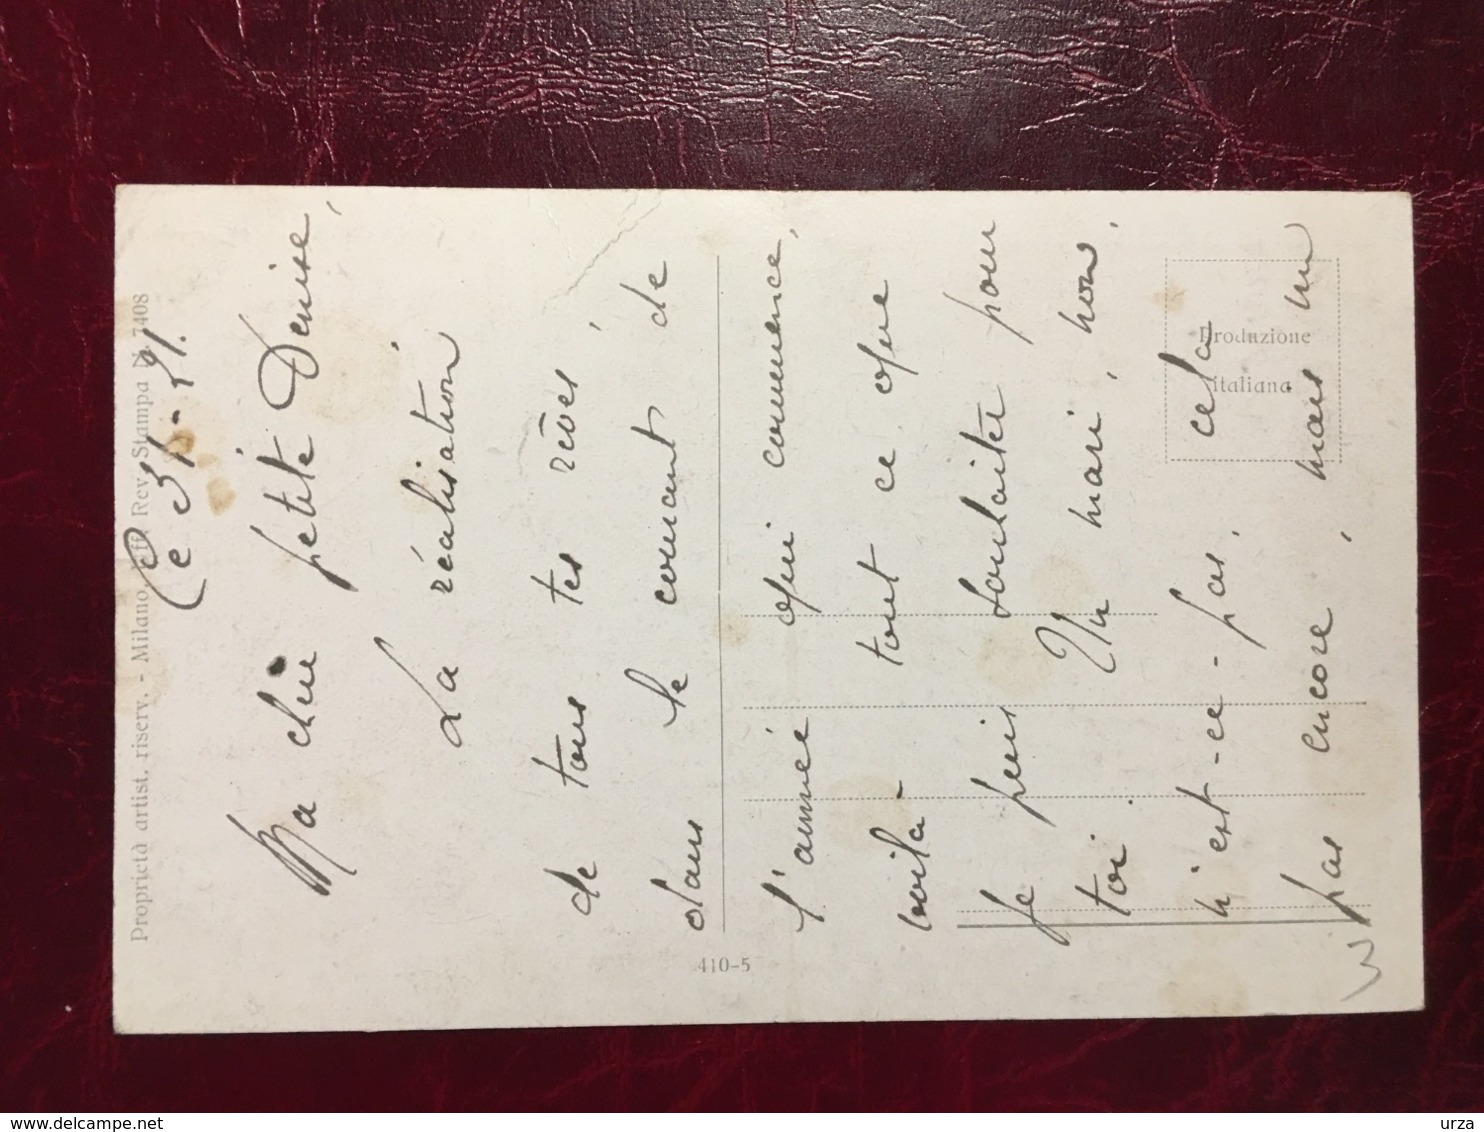 Ce 31-
Ma chère petite Denise,
La réalisation
de tous tes rêves,
dans le courant de
l'année qui commence,
voilà tout ce que
je puis souhaiter pour
toi. Un mari, non,
n'est-ce-pas, cela
pas encore, mais un
Proprietà artist. riserv. - Milano, Eff. Rev. Stampa N. 7408
410-5
Produzione
italiana
3
www.delcampe.net
urza